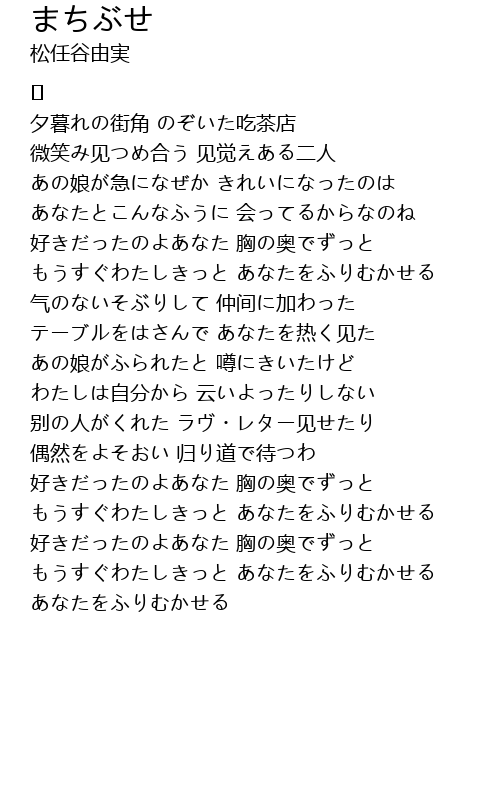 まちぶせ
松任谷由実
夕暮れの街角 のぞいた吃茶店
微笑み见つめ合う 见觉えある二人
あの娘が急になぜか きれいになったのは
あなたとこんなふうに 会ってるからなのね
好きだったのよあなた 胸の奥でずっと
もうすぐわたしきっと あなたをふりむかせる
气のないそぶりして 仲间に加わった
テーブルをはさんで あなたを热く见た
あの娘がふられたと 噂にきいたけど
わたしは自分から 云いよったりしない
别の人がくれた ラヴ・レター见せたり
偶然をよそおい 归り道で待つわ
好きだったのよあなた 胸の奥でずっと
もうすぐわたしきっと あなたをふりむかせる
好きだったのよあなた 胸の奥でずっと
もうすぐわたしきっと あなたをふりむかせる
あなたをふりむかせる